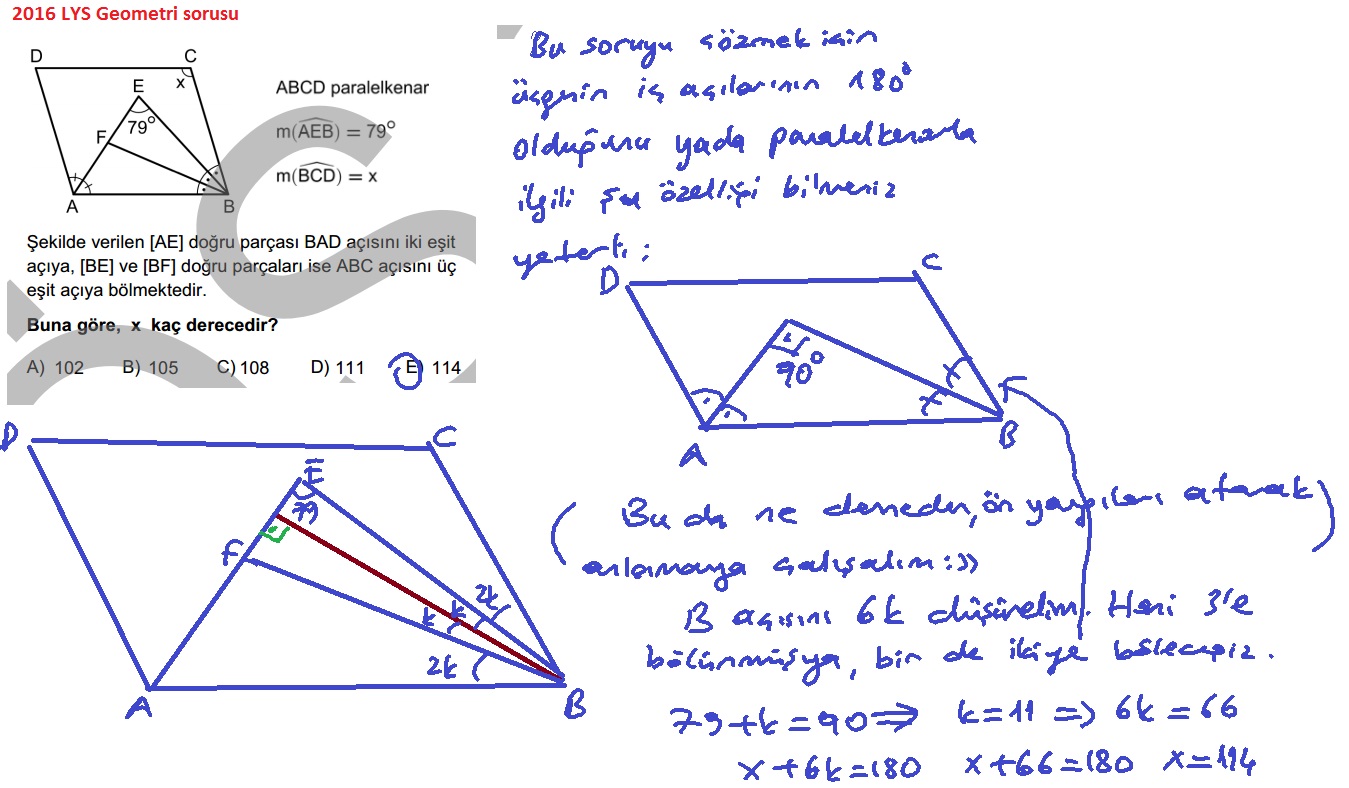 2016 LYS Geometri sorusu
D C
E x
F 79°
A B
ABCD paralelkenar
m(AEB) = 79°
m(BCD) = x
Şekilde verilen [AE] doğru parçası BAD açısını iki eşit
açıya, [BE] ve [BF] doğru parçaları ise ABC açısını üç
eşit açıya bölmektedir.
Buna göre, x kaç derecedir?
A) 102 B) 105 C) 108 D) 111 E) 114
Bu soruyu çözmek için
üçgenin iç açılarının 180°
olduğunu yada paralelkenarla
ilgili şu özelliği bilmeniz
yeterli :
D C
90° x
x
A B
D C
E
79
F 2k
k k
2k
A B
(Bu da ne demeden, ön yargıları atarak
anlamaya çalışalım :))
B açısını 6k düşünelim. Hani 3'e
bölünmüş ya, bir de ikiye böleceğiz.
79+k=90 ⇒ k=11 ⇒ 6k=66
x+6k=180 x+66=180 x=114